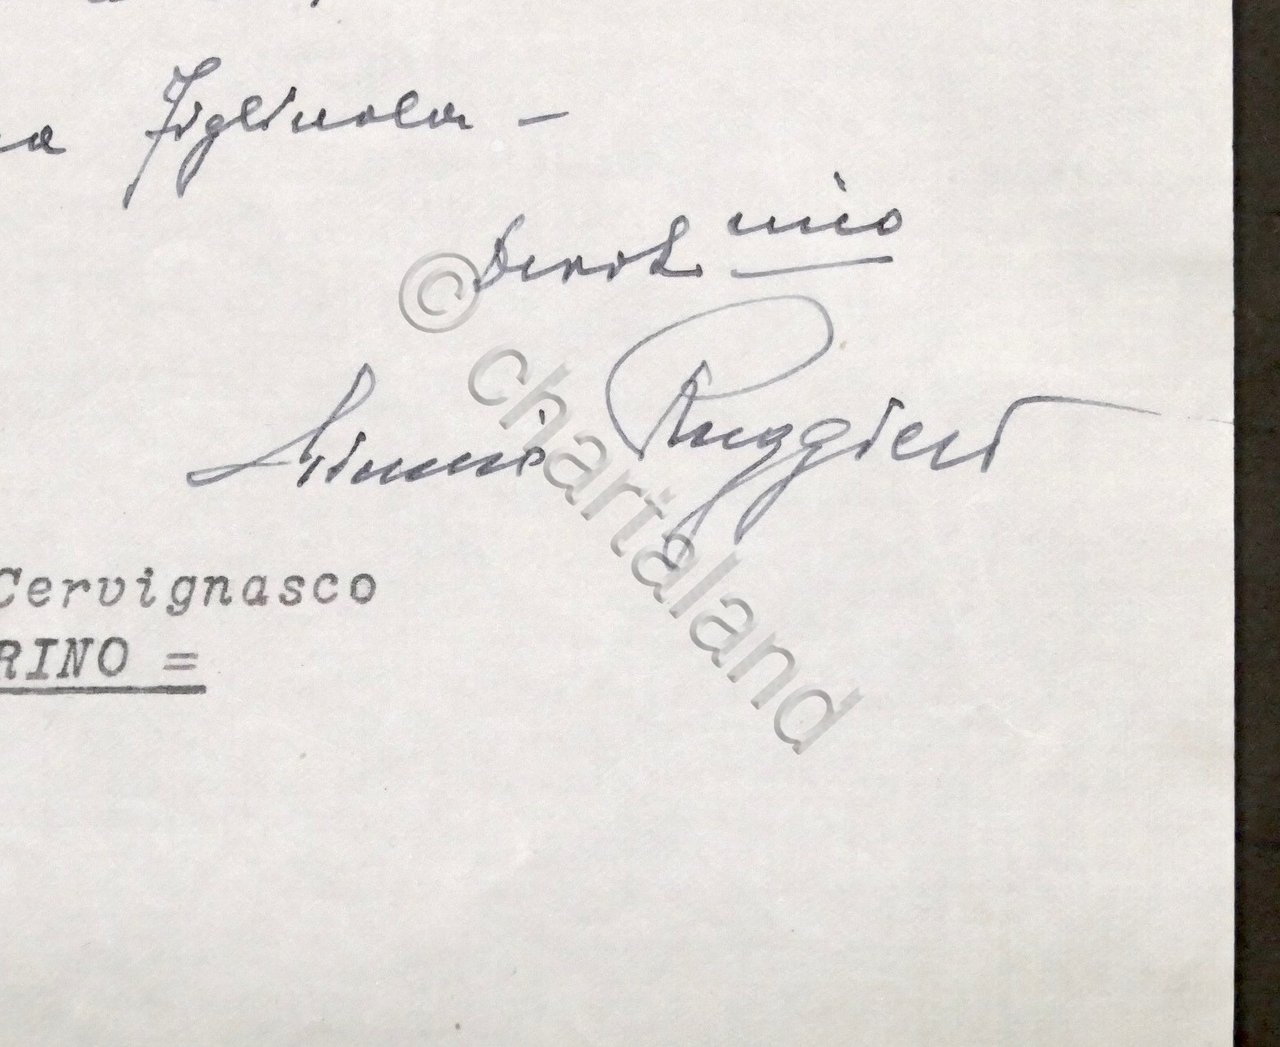 Figliuola -
Devot.mo
Ruggieri
Cervignasco
RINO =
© chartaland